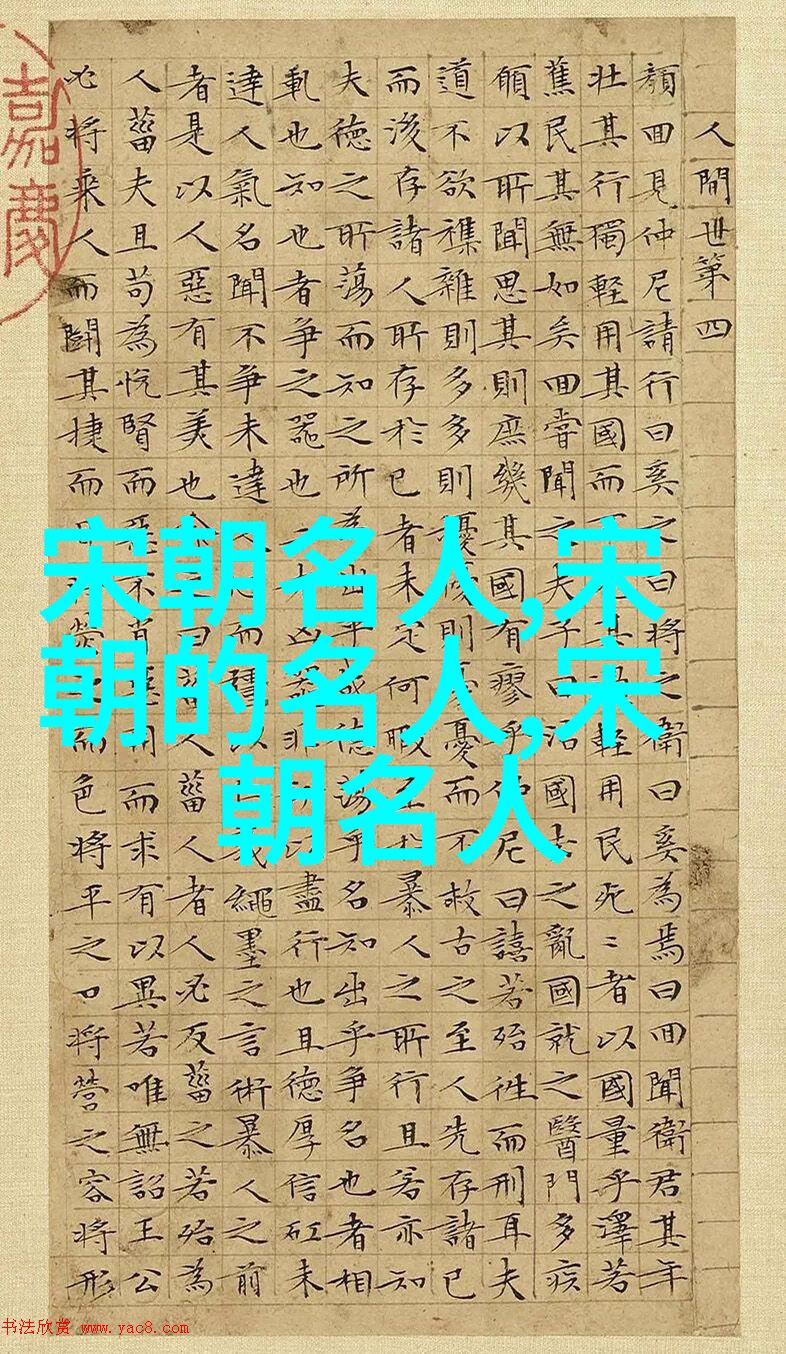 人間世第四
顔囬見仲尼請行曰奚之曰將之衛曰奚為焉曰囬聞衛君其年
壯其行獨輕用其國而其輕用民死〻者以國量乎澤若
蕉民其無如矣囬嘗聞之夫子曰治國去之亂國就之醫門多疾
願以所聞思其則庶幾其國有瘳乎仲尼曰譆若殆徃而刑耳夫
道不欲襍雜則多多則擾擾則憂憂而不救古之至人先存諸已
而後存諸人所存扵已者未定何暇至扵暴人之所行且若亦知
夫德之所蕩而知之所為出乎哉德蕩乎名知出乎爭名也者相
軋也知也者爭之器也二者凶器非以盡行也且德厚信矼未
達人氣名聞不爭未達人而彊以義繩墨之言術暴人之前
者是以人惡有其美也命曰菑人菑人者人必反菑之若殆為
人菑夫且苟為悅賢而惡不肖惡用而求有以異若唯無詔王公
必將乘人而鬪其捷而熒而色將平之口將營之容將形
嘉慶
宋朝名人,宋
朝的名人,宋
朝名人
书法欣赏 www.yac8.com